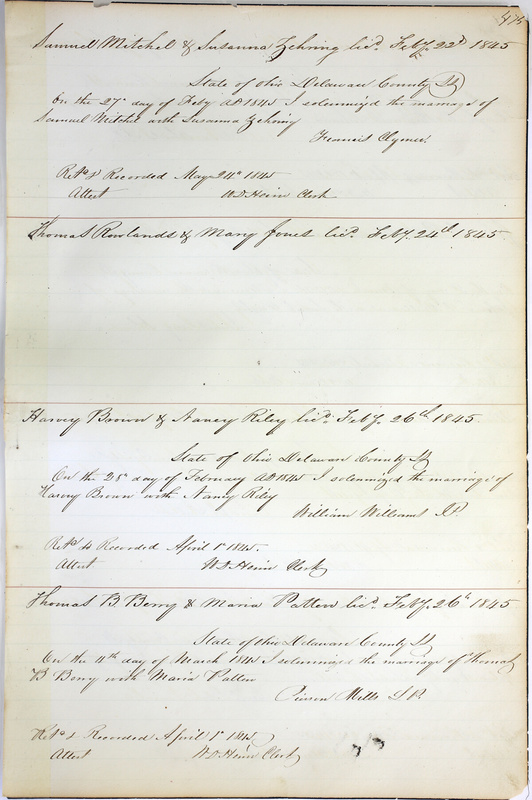 Samuel Mitchel & Susanna Zehring licd. Feby. 22d 1845
State of Ohio Delaware County SS
On the 27th day of Feby AD 1845 I solemnized the marriage of
Samuel Mitchel with Susanna Zehring
Francis Clymer.
Retd & Recorded May 24th 1845
Attest W D Heim Clerk
Thomas Rowlands & Mary Jones licd. Feby. 24th 1845
Harvey Brown & Nancy Riley licd. Feby. 26th 1845.
State of Ohio Delaware County SS
On the 28th day of February AD 1845 I solemnized the marriage of
Harvey Brown with Nancy Riley
William Williams J.P.
Retd & Recorded April 1st 1845.
Attest W D Heim Clerk
Thomas B. Berry & Maria Patten licd. Feby. 26th 1845
State of Ohio Delaware County SS
On the 11th day of March 1845 I solemnized the marriage of Thomas
B Berry with Maria Patten
Pierson Mills J.P.
Retd & Recorded April 1st 1845.
Attest W D Heim Clerk